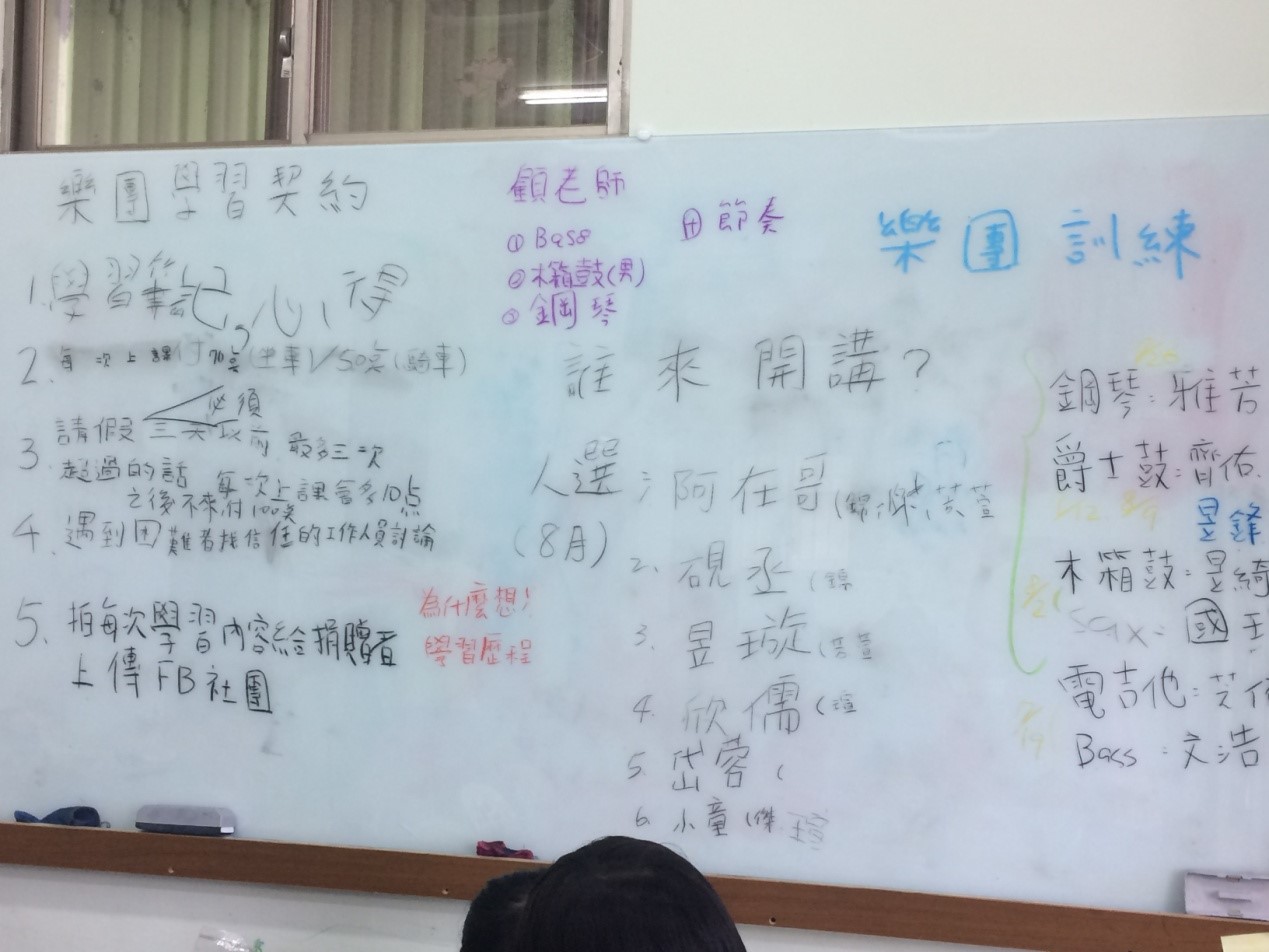 樂團學習契約
1.學習筆記,心得
2.每次上課付70點(坐車)/50點(騎車)
必須
3.請假三天以前 最多三次
超過的話 每次上課會多10点
之後不來付100点
4.遇到困難者找信任的工作人員討論
5.拍每次學習內容給捐贈者
上傳FB社團
為什麼想!
學習歷程
顧老師
①Bass
②木箱鼓(男)
③鋼琴
田節奏
樂團訓練
誰來開講?
人選:阿在哥
(8月)
2.硯丞
3.昱璇
4.欣儒
5.岱蓉
6.小童
鋼琴:雅芳
爵士鼓:齊佑
昱鋒
木箱鼓:昱綺
Sax:國
電吉他:
Bass:文浩